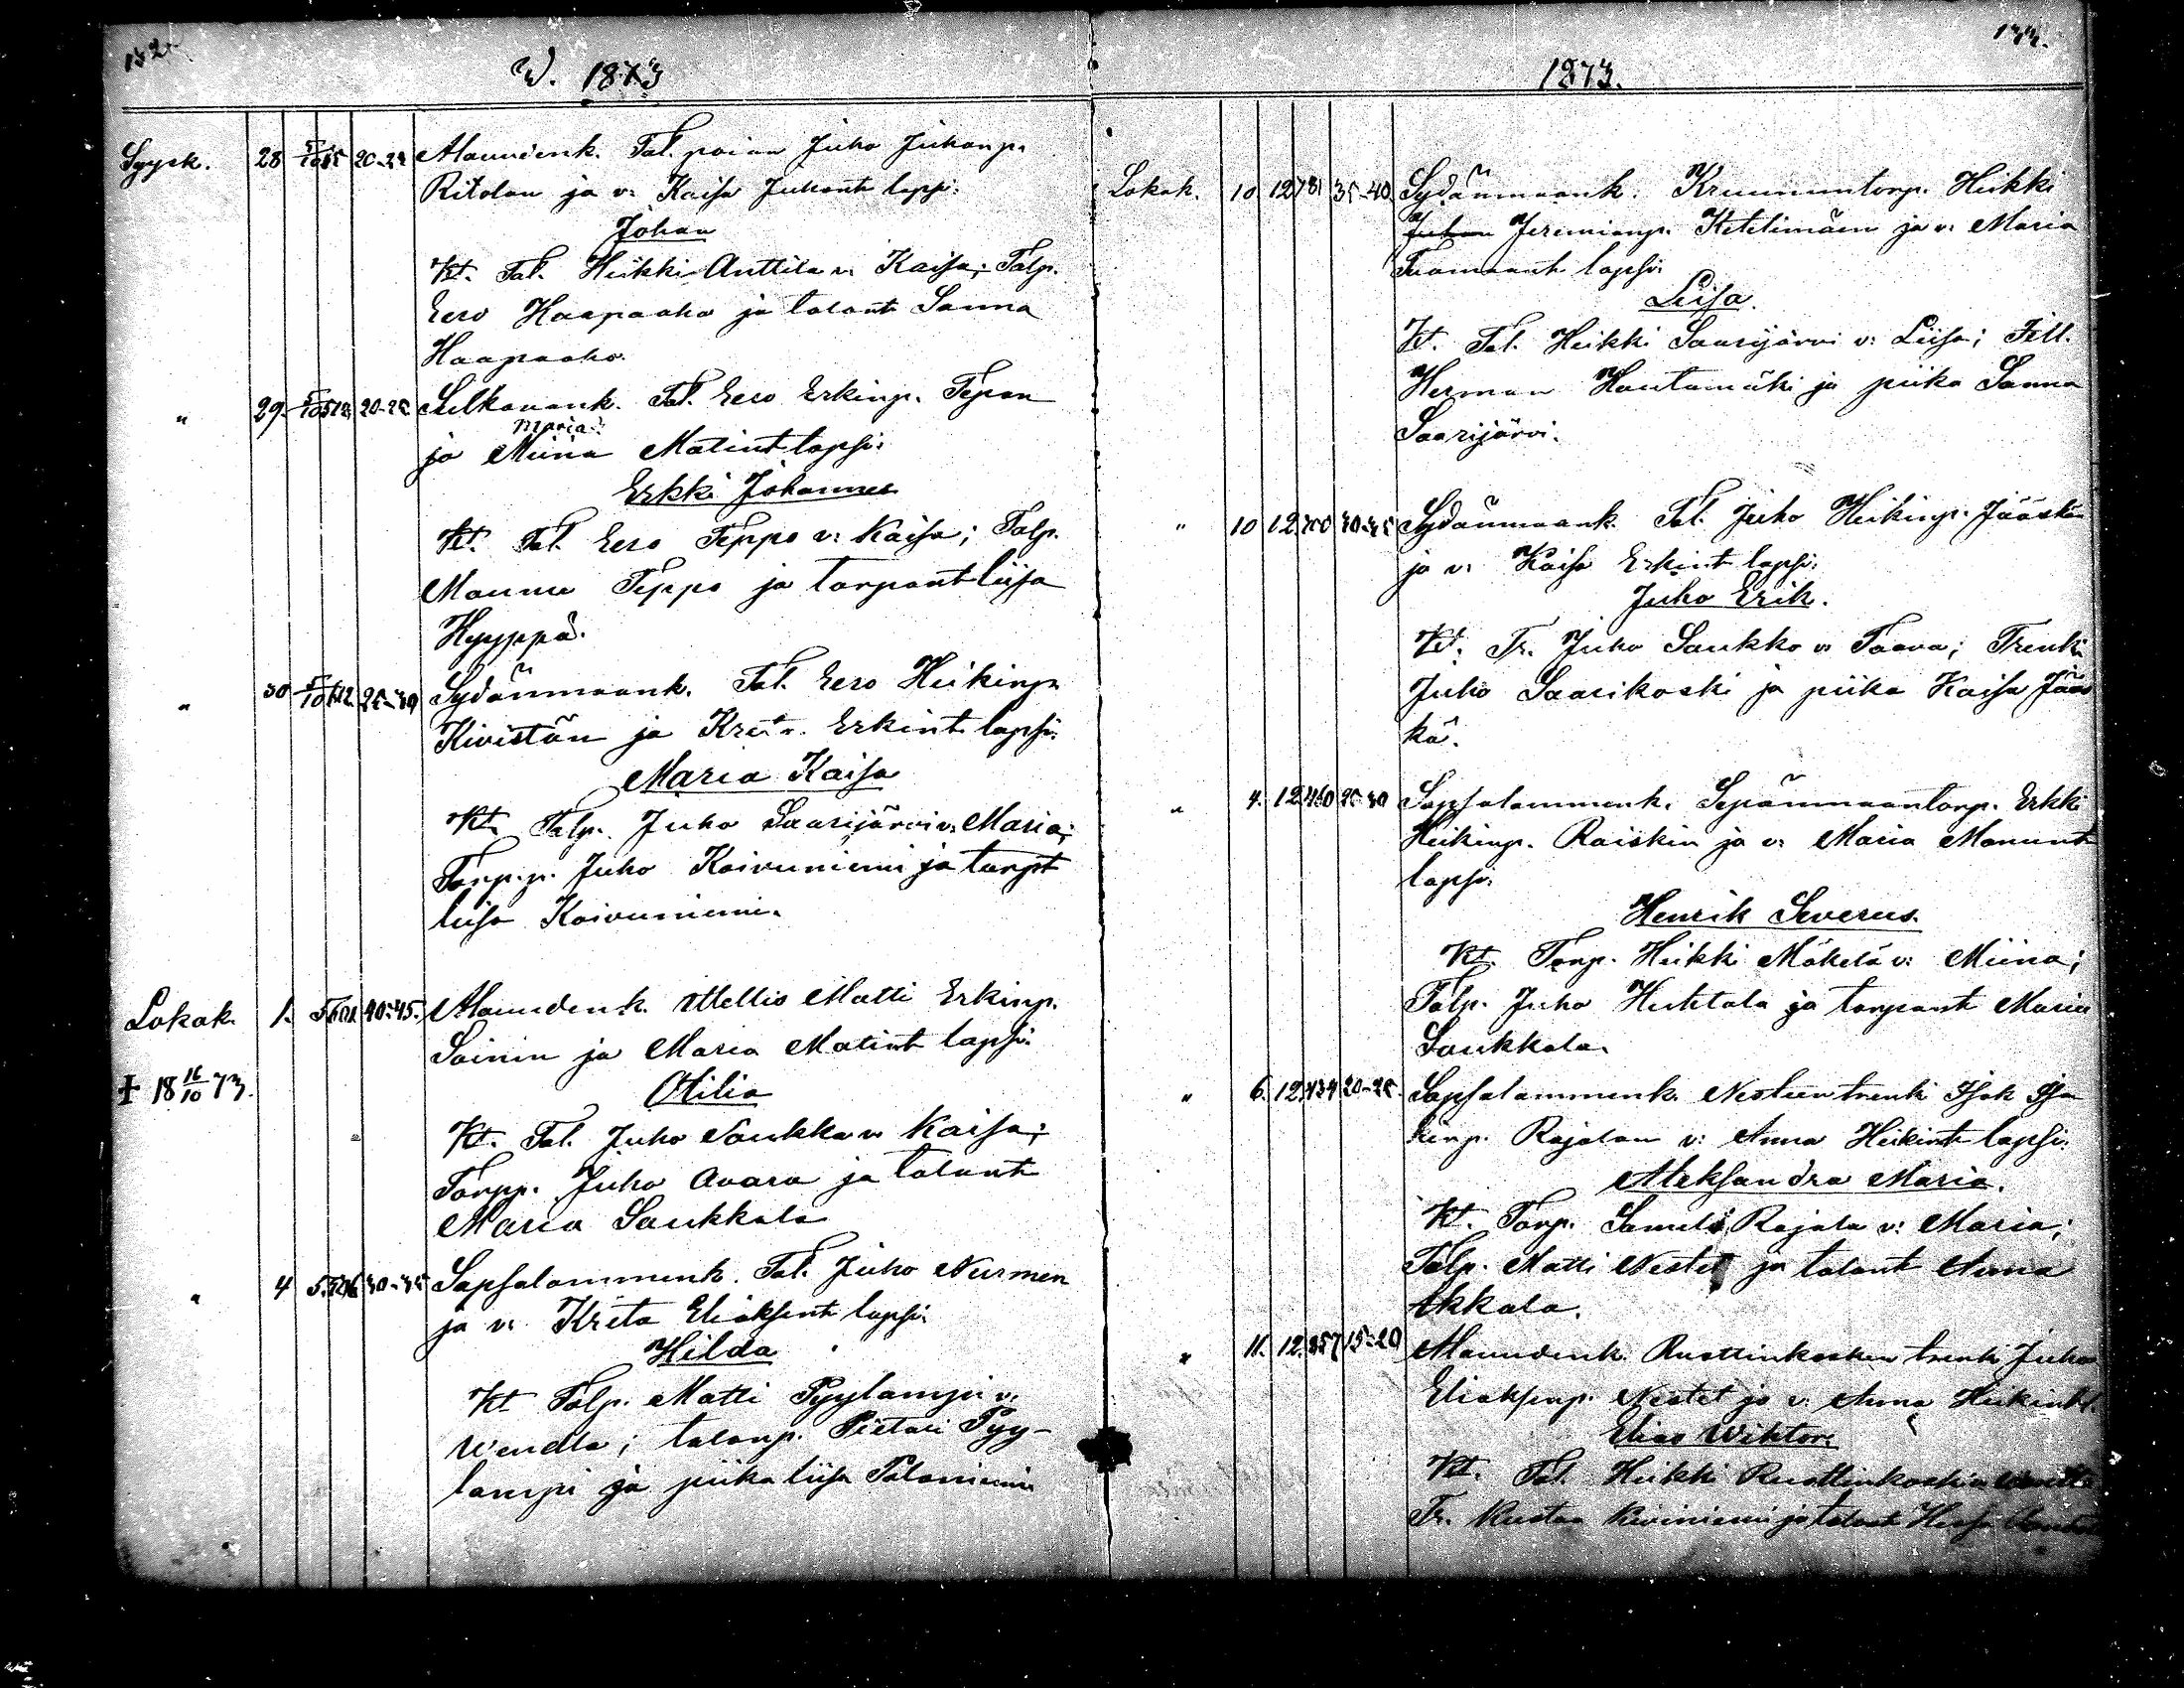 132.
W. 1873
Syysk. 28 5/10 85 20-25 Alavudenk. Tal. poian Juho Juhanp.
Ritolan ja v: Kaisa Juhont lapsi:
Johan
Kt. Tal. Heikki Anttila v: Kaisa; Talp.
Eero Haapaaho ja talont Sanna
Haapaaho.
" 29. 5/10 20-25 Tal. Eero Erkinp. Tepon
Maria
ja Miina Matint lapsi:
Erkki Johannes
Kt. Tal. Eero Teppo v: Kaisa; Talp.
Mannu Teppo ja torpant Liisa
Hyyppä.
" 30 5/10 25-30 Sydänmaank. Tal. Eero Heikinp.
Kivistön ja Kreta v. Erkint lapsi:
Maria Kaisa
Kt. Talp. Juho Saarijärvi v: Maria;
Torp.p. Juho Koivuniemi ja torpt
Liisa Koivuniemi.
Lokak. 1. 5. 40-45. Alavudenk. Matti Erkinp.
Soinin ja Maria Matint lapsi:
† 18 16/10 73.
Otilia
Kt. Tal. Juho Saukko v: Kaisa;
Torpp. Juho Avara ja talont
Maria Saukkola
" 4 5. 30-35 Sapsalammenk. Tal. Juho Nurmen
ja v: Kreta Eliaksent lapsi:
Hilda
Kt. Talp. Matti Pyylampi v:
Wendla; talonp. Pietari Pyy-
lampi ja piika Liisa Palomiemi
133.
1873.
Lokak. 10 12 781 35-40. Sydänmaank. Kruununtorp. Heikki
Juhan Jeremianp. Ketelimäen ja v: Maria
Tuomaant lapsi:
Liisa.
Kt. Tal. Heikki Saarijärvi v: Liisa; Itell.
Herman Hautamäki ja piika Sanna
Saarijärvi.
" 10 12. Sydänmaank. Tal. Juho Heikinp. Jääskän
ja v: Kaisa Erkint lapsi:
Juho Erik.
Kt. Tr. Juho Saukko v: Taava; Trenki
Juho Saarikoski ja piika Kaisa Jääs
kä.
" 4. 12. Sapsalammenk. Sepänmaantorp. Erkki
Heikinp. Raiskin ja v: Maria Manunt
lapsi:
Henrik Severus.
Kt. Torp. Heikki Mäkelä v: Miina;
Talp. Juho Huhtala ja torpant Maria
Saukkola.
" 6. 12. 20-25. Sapsalammenk. Nesteen trenki Isak Isa
kinp. Rajalan v: Anna Heikint lapsi:
Aleksandra Maria.
Kt. Torp. Samuli Rajala v: Maria;
Talp. Matti Neste ja talont Anna
Akkala.
" 11. 12. 257 15-20 Alavudenk. Ruottinkosken trenki Juho
Eliaksenp. Nestet ja v: Anna Heikint l.
Elias Wihtori
Kt. Tal. Heikki Ruottinkoski v:
Tr. Kustaa Kiviniemi ja talont